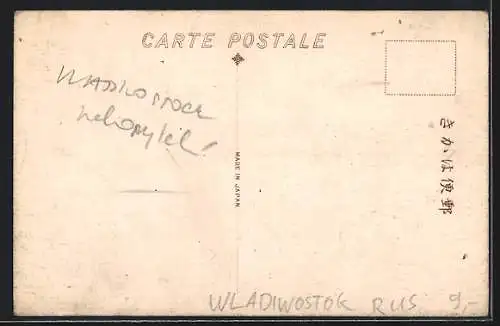 CARTE POSTALE
きかは便郵
MADE IN JAPAN
WLADIWOSTOK RUS 9,-